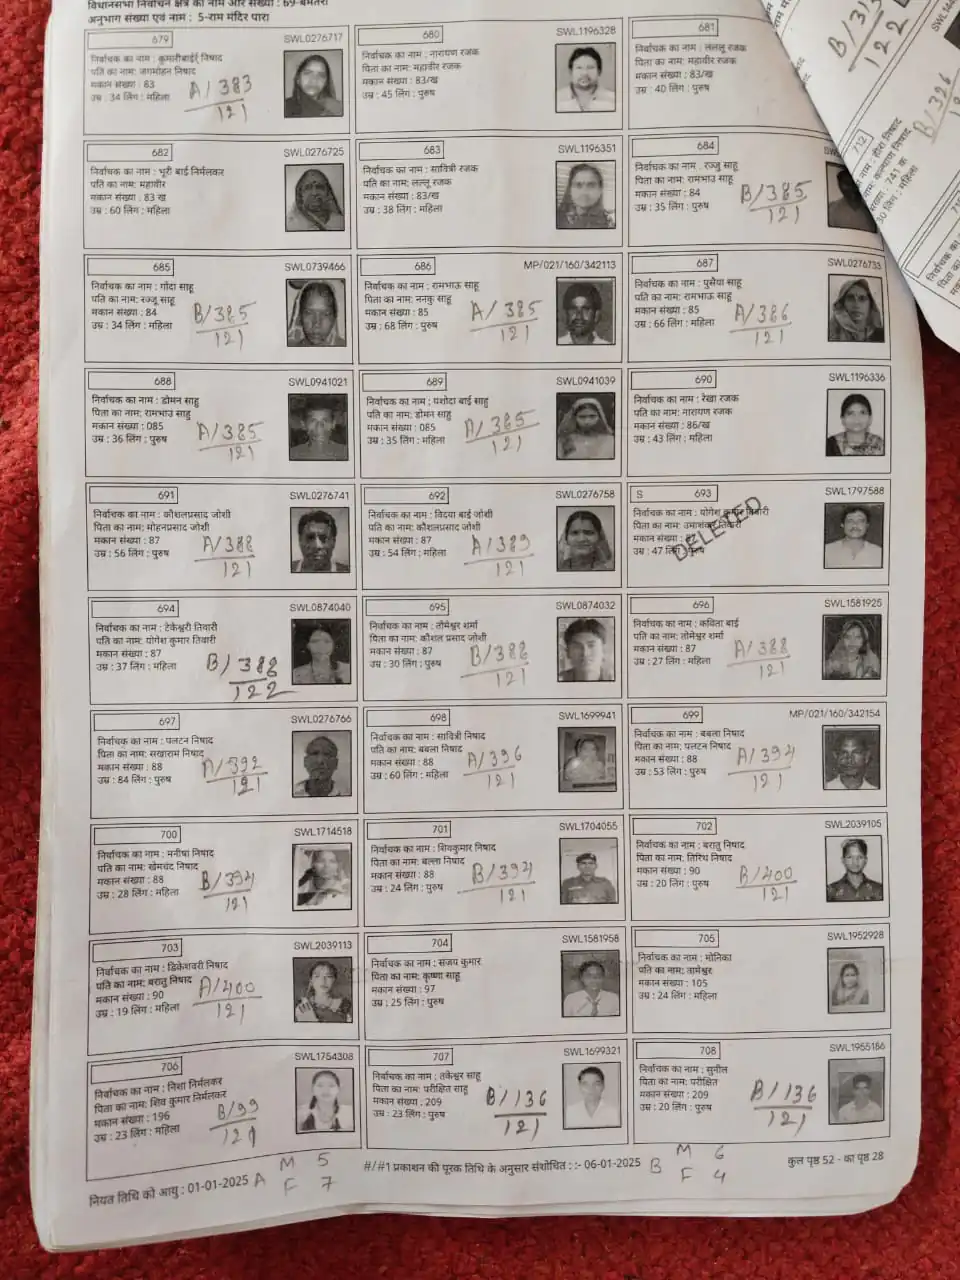 विधानसभा निर्वाचन क्षेत्र का नाम और संख्या : 69-बेमेतरा
अनुभाग संख्या एवं नाम : 5-राम मंदिर पारा
679 SWL0276717
निर्वाचक का नाम : कुमारीबाई निषाद
पति का नाम: जगमोहन निषाद
मकान संख्या : 83
उम्र : 34 लिंग : महिला
A/383
121
680 SWL1196328
निर्वाचक का नाम : नारायण रजक
पिता का नाम: महावीर रजक
मकान संख्या : 83/ख
उम्र : 45 लिंग : पुरुष
681
निर्वाचक का नाम : लललू रजक
पिता का नाम: महावीर रजक
मकान संख्या : 83/ख
उम्र : 40 लिंग : पुरुष
682 SWL0276725
निर्वाचक का नाम : भूरी बाई निर्मलकर
पति का नाम: महावीर
मकान संख्या : 83 ख
उम्र : 60 लिंग : महिला
683 SWL1196351
निर्वाचक का नाम : सावित्री रजक
पति का नाम: लल्लू रजक
मकान संख्या : 83/ख
उम्र : 38 लिंग : महिला
684
निर्वाचक का नाम : रज्जु साहू
पिता का नाम: रामभाऊ साहू
मकान संख्या : 84
उम्र : 35 लिंग : पुरुष
B/385
121
685 SWL0739466
निर्वाचक का नाम : गोंदा साहू
पति का नाम: रज्जू साहू
मकान संख्या : 84
उम्र : 34 लिंग : महिला
B/385
121
686 MP/021/160/342113
निर्वाचक का नाम : रामभाऊ साहू
पिता का नाम: ननकु साहू
मकान संख्या : 85
उम्र : 68 लिंग : पुरुष
A/385
121
687 SWL0276733
निर्वाचक का नाम : पुसैया साहू
पति का नाम: रामभाऊ साहू
मकान संख्या : 85
उम्र : 66 लिंग : महिला
A/386
121
688 SWL0941021
निर्वाचक का नाम : डोमन साहू
पिता का नाम: रामभाउ साहू
मकान संख्या : 085
उम्र : 36 लिंग : पुरुष
A/385
121
689 SWL0941039
निर्वाचक का नाम : यशोदा बाई साहू
पति का नाम: डोमन साहू
मकान संख्या : 085
उम्र : 35 लिंग : महिला
A/385
121
690 SWL1196336
निर्वाचक का नाम : रेखा रजक
पति का नाम: नारायण रजक
मकान संख्या : 86/ख
उम्र : 43 लिंग : महिला
691 SWL0276741
निर्वाचक का नाम : कौशलप्रसाद जोशी
पिता का नाम: मोहनप्रसाद जोशी
मकान संख्या : 87
उम्र : 56 लिंग : पुरुष
A/388
121
692 SWL0276758
निर्वाचक का नाम : विदया बाई जोशी
पति का नाम: कौशलप्रसाद जोशी
मकान संख्या : 87
उम्र : 54 लिंग : महिला
A/389
121
S 693 SWL1797588
निर्वाचक का नाम : योगेश कुमार तिवारी
पिता का नाम: उमाशंकर तिवारी
मकान संख्या : 87
उम्र : 47 लिंग : पुरुष
DELETED
694 SWL0874040
निर्वाचक का नाम : टेकेश्वरी तिवारी
पति का नाम: योगेश कुमार तिवारी
मकान संख्या : 87
उम्र : 37 लिंग : महिला
B/388
122
695 SWL0874032
निर्वाचक का नाम : तोमेश्वर शर्मा
पिता का नाम: कौशल प्रसाद जोशी
मकान संख्या : 87
उम्र : 30 लिंग : पुरुष
B/388
121
696 SWL1581925
निर्वाचक का नाम : कविता बाई
पति का नाम: तोमेश्वर शर्मा
मकान संख्या : 87
उम्र : 27 लिंग : महिला
A/388
121
697 SWL0276766
निर्वाचक का नाम : पलटन निषाद
पिता का नाम: सखाराम निषाद
मकान संख्या : 88
उम्र : 84 लिंग : पुरुष
A/392
121
698 SWL1699941
निर्वाचक का नाम : सावित्री निषाद
पति का नाम: बबला निषाद
मकान संख्या : 88
उम्र : 60 लिंग : महिला
A/396
121
699 MP/021/160/342154
निर्वाचक का नाम : बबला निषाद
पिता का नाम: पलटन निषाद
मकान संख्या : 88
उम्र : 53 लिंग : पुरुष
A/394
121
700 SWL1714518
निर्वाचक का नाम : मनीषा निषाद
पति का नाम: खेमचंद निषाद
मकान संख्या : 88
उम्र : 28 लिंग : महिला
B/394
121
701 SWL1704055
निर्वाचक का नाम : शिवकुमार निषाद
पिता का नाम: बल्ला निषाद
मकान संख्या : 88
उम्र : 24 लिंग : पुरुष
B/394
121
702 SWL2039105
निर्वाचक का नाम : बरातु निषाद
पिता का नाम: तिरिथ निषाद
मकान संख्या : 90
उम्र : 20 लिंग : पुरुष
B/400
121
703 SWL2039113
निर्वाचक का नाम : डिकेशवरी निषाद
पति का नाम: बरातु निषाद
मकान संख्या : 90
उम्र : 19 लिंग : महिला
A/400
121
704 SWL1581958
निर्वाचक का नाम : संजय कुमार
पिता का नाम: कृष्णा साहू
मकान संख्या : 97
उम्र : 25 लिंग : पुरुष
705 SWL1952928
निर्वाचक का नाम : मोनिका
पति का नाम: तामेश्वर
मकान संख्या : 105
उम्र : 24 लिंग : महिला
706 SWL1754308
निर्वाचक का नाम : निशा निर्मलकर
पिता का नाम: शिव कुमार निर्मलकर
मकान संख्या : 196
उम्र : 23 लिंग : महिला
B/99
121
707 SWL1699321
निर्वाचक का नाम : तकेश्वर साहू
पिता का नाम: परीक्षित साहू
मकान संख्या : 209
उम्र : 23 लिंग : पुरुष
B/136
121
708 SWL1955186
निर्वाचक का नाम : सुनील
पिता का नाम: परीक्षित
मकान संख्या : 209
उम्र : 20 लिंग : पुरुष
B/136
121
नियत तिथि को आयु : 01-01-2025
A M 5
F 7
#/#1 प्रकाशन की पूरक तिथि के अनुसार संशोधित : :- 06-01-2025
B M 6
F 4
कुल पृष्ठ 52 - का पृष्ठ 28
B/313
122
B/326
712